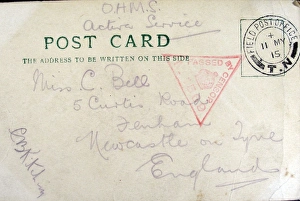 O.H.M.S.
Active Service
POST CARD
THE ADDRESS TO BE WRITTEN ON THIS SIDE
FIELD POST OFFICE
11 MY
15
T.N.
PASSED BY
CENSOR
Miss C. Bell
5 Curtis Road
Fenham
Newcastle on Tyne
England